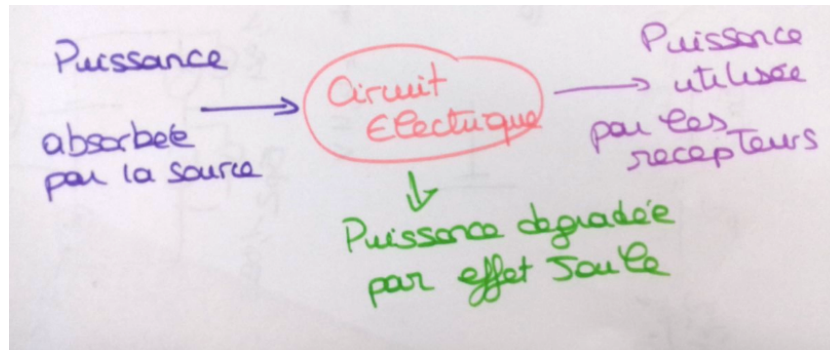 Puissance
absorbée
par la source
Circuit
Electrique
Puissance
utilisée
par les
recepteurs
Puissance degradée
par effet Joule